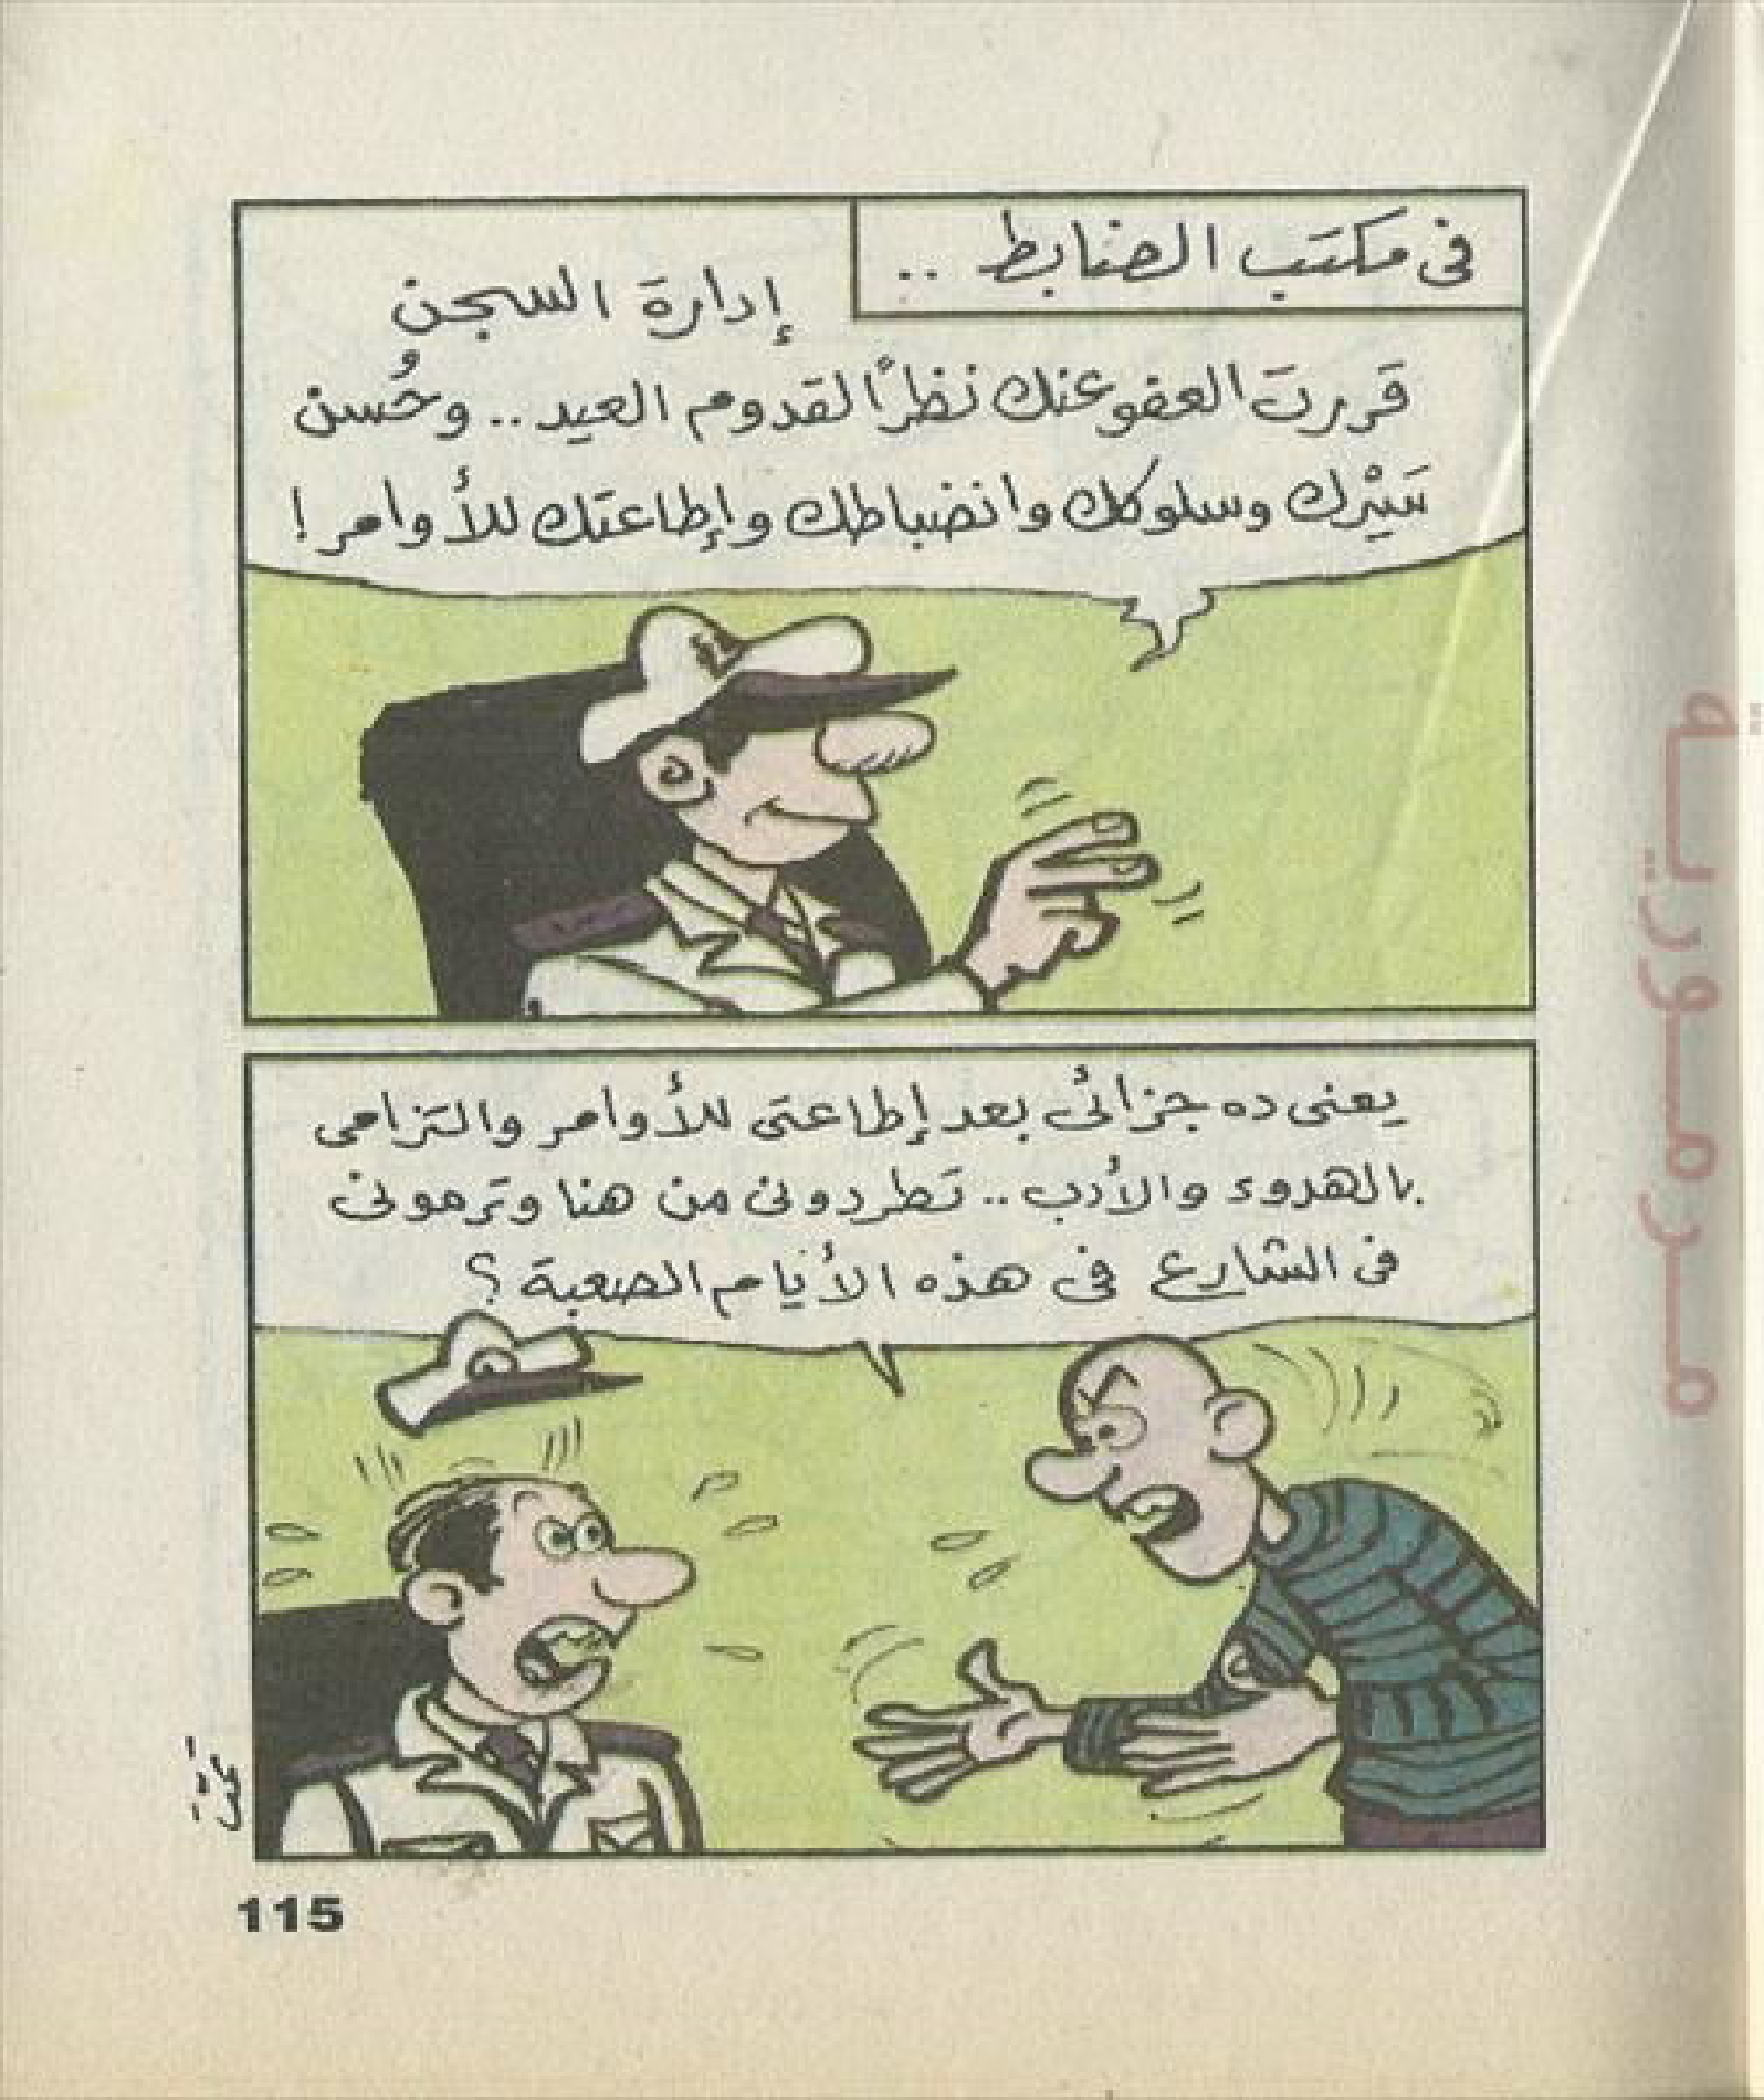 فى مكتب الضابط ..
إدارة السجن
قررت العفو عنك نظرًا لقدوم العيد .. وحُسن
سَيْرك وسلوكك وانضباطك وإطاعتك للأوامر !
يعنى ده جزائى بعد إطاعتى للأوامر والتزامى
بالهدوء والأدب .. تطردونى من هنا وترمونى
فى الشارع فى هذه الأيام الصعبة ؟
115